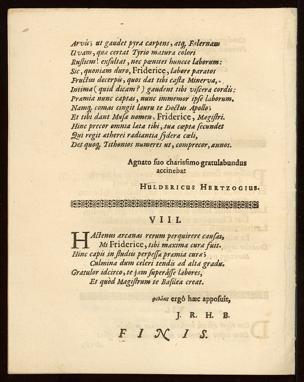 Arvis; ut gaudet pyra carpens, atq, Falernam
Uvam, quæ certat Tyrio matura colori
Rusticus! exsultat, nec pœnitet hunce laborum:
Sic, quoniam duro, Friderice, labore paratos
Fructus decerpis, quos dat tibi casta Minerva,
Intima (quid dicam?) gaudent tibi viscera cordis:
Præmia nunc captas, nunc immemor ipse laborum.
Namq, comas cingit lauru te Doctus Apollo:
Et tibi dant Musæ nomen, Friderice, Magistri.
Hinc precor omnia læta tibi, sua cœpta secundet
Qui regit ætherei radiantia sydera cœli,
Det quoq, Tithonios numeret ut, comprecor, annos.
Agnato suo charissimo gratulabundus
accinebat
HULDERICUS HERTZOGIUS.
VIII.
HActenus arcanas rerum perquirere causas,
Mi Friderice, tibi maxima cura fuit.
Hinc capis in studiis perpessa præmia cura;
Culmina dum celeri tendis ad alta gradu.
Gratulor idcirco, te jam superâsse labores,
Et quòd Magistrum te Basilea creat.
ergò hæc apposuit,
J. R. H. B.
FINIS.